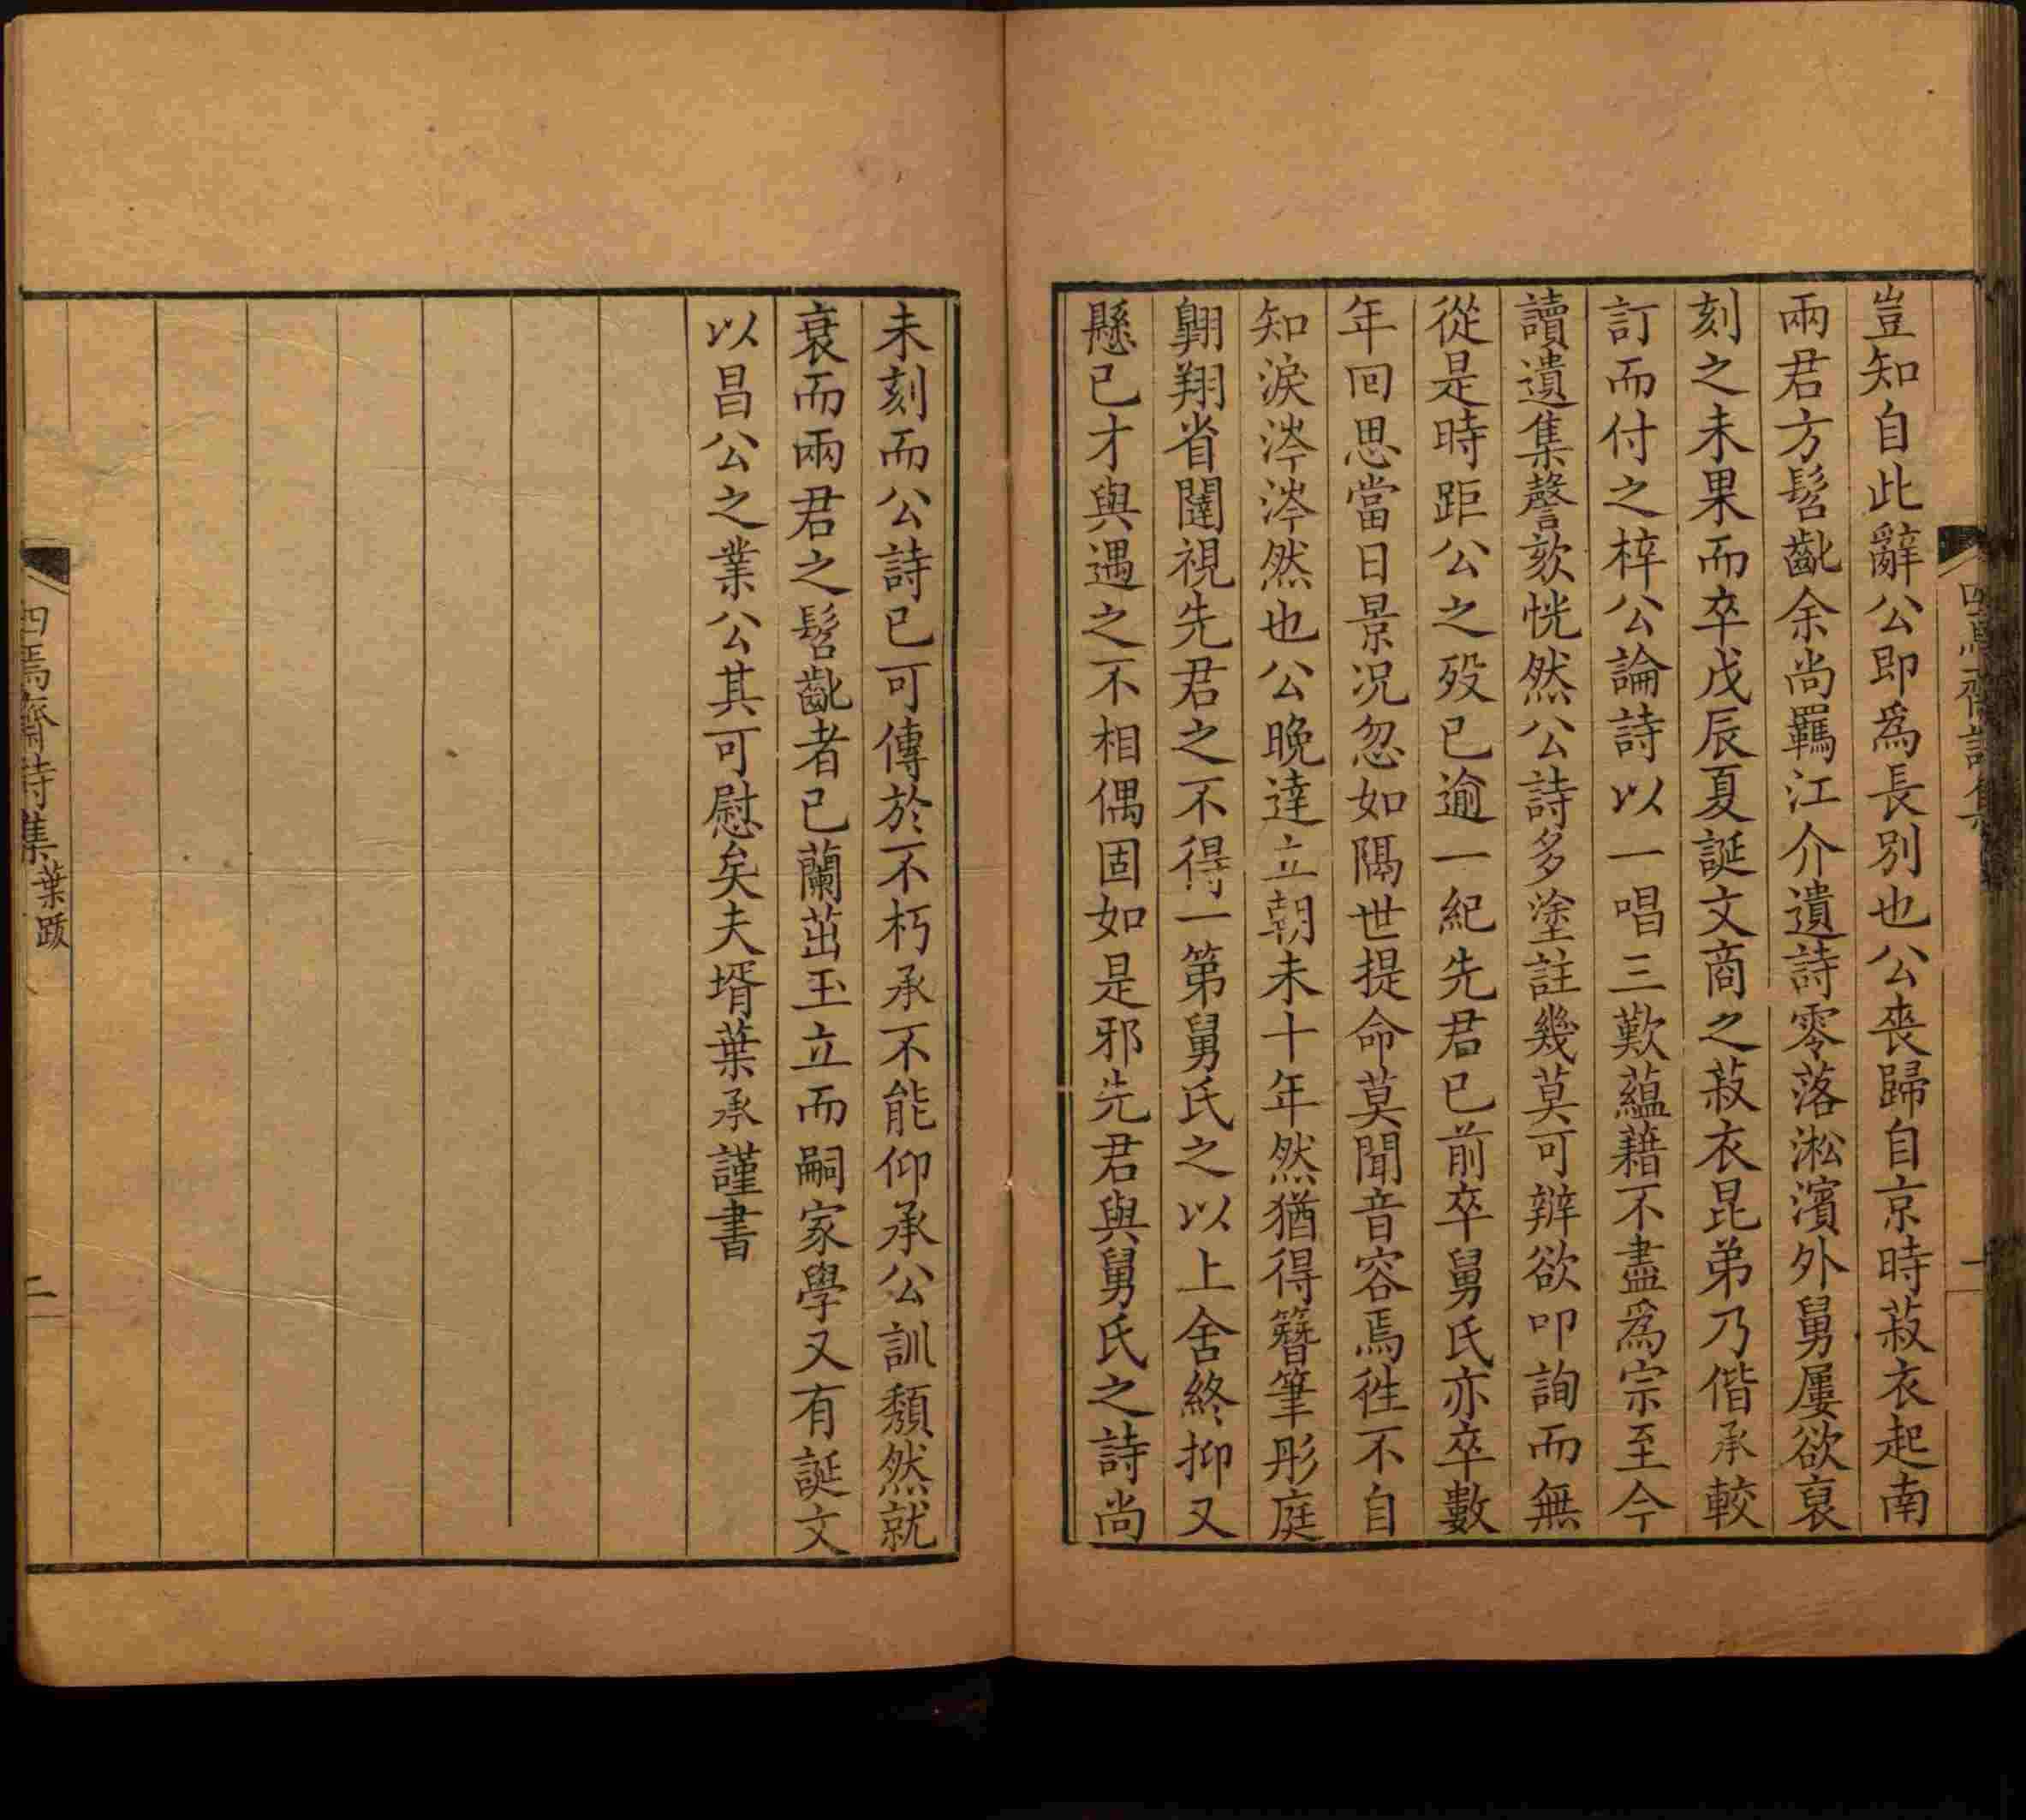 豈知自此辭公即爲長別也公喪歸自京時菽衣起南
兩君方髫齔余尚羈江介遺詩零落淞濱外舅屢欲裒
刻之未果而卒戊辰夏誕文商之菽衣昆弟乃偕承較
訂而付之梓公論詩以一唱三歎蘊藉不盡爲宗至今
讀遺集謦欬恍然公詩多塗註幾莫可辨欲叩詢而無
從是時距公之歿已逾一紀先君已前卒舅氏亦卒數
年回思當日景況忽如隔世提命莫聞音容焉徃不自
知淚涔涔然也公晚達立朝未十年然猶得簪筆彤庭
翺翔省闥視先君之不得一第舅氏之以上舍終抑又
懸已才與遇之不相偶固如是邪先君與舅氏之詩尚
未刻而公詩已可傳於不朽承不能仰承公訓頽然就
衰而兩君之髫齔者已蘭茁玉立而嗣家學又有誕文
以昌公之業公其可慰矣夫壻葉承謹書
四焉齋詩集 葉跋
二